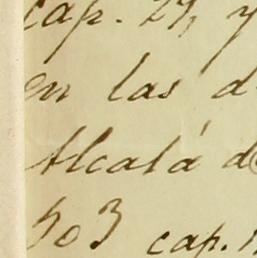 cap. 27, y
en las d
Alcalá d
503 cap.